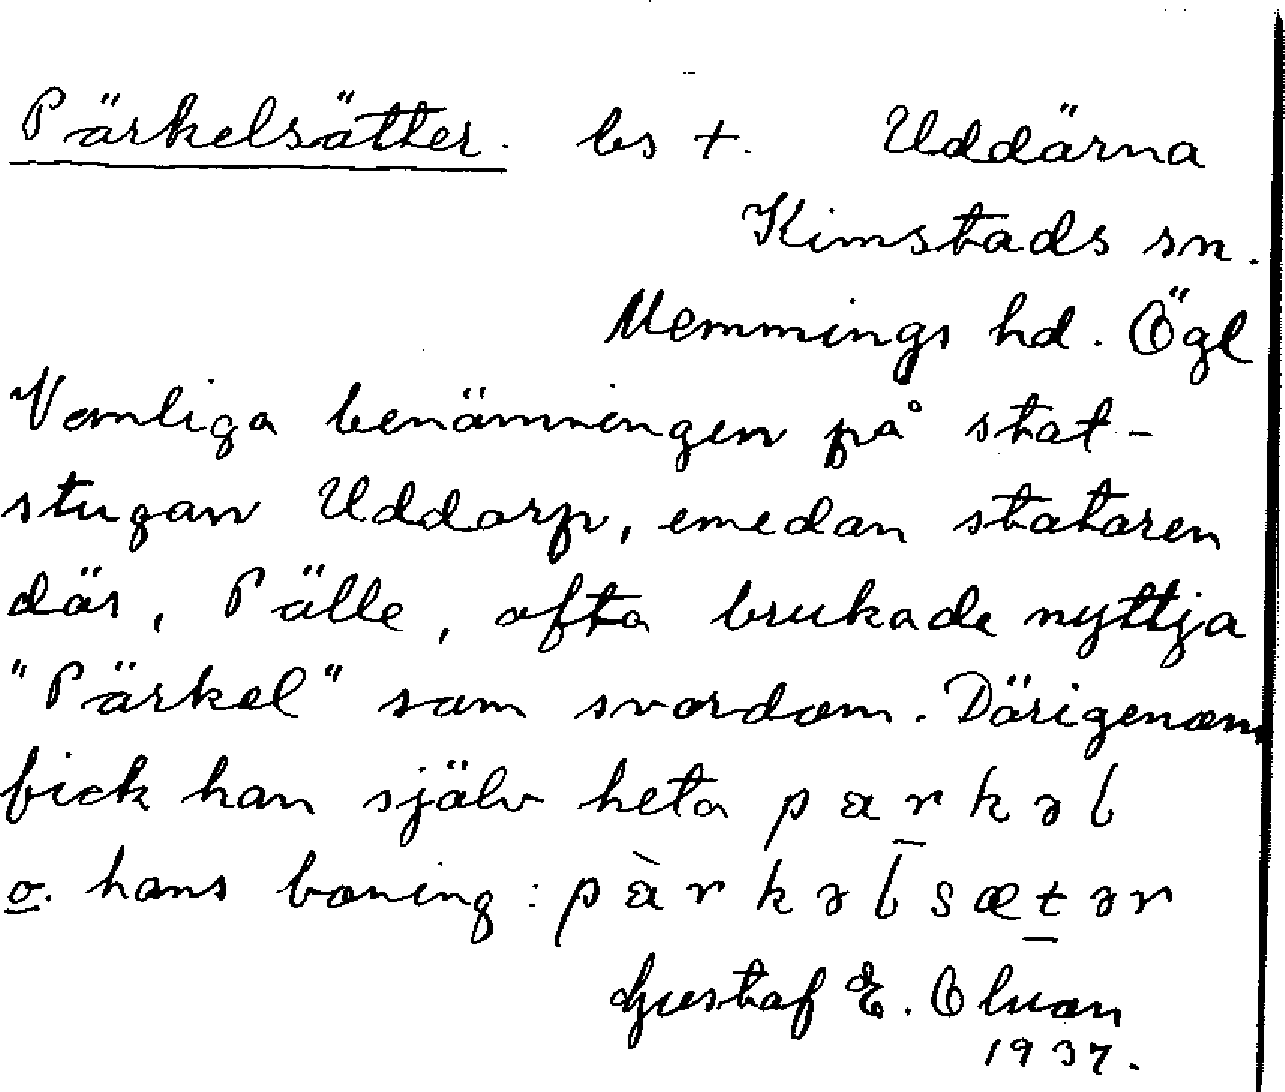 Pärkelsätter. bs +. Uddärna
Kimstads sn.
Memmings hd. Ögl
Vanliga benämningen på stat-
stugan Uddarp, emedan stataren
där, Pälle, ofta brukade nyttja
"Pärkel" som svordom. Därigenom
fick han själv heta pærkəl
o. hans boning: pærkəlsætər
Gustaf E. Olson
1937.